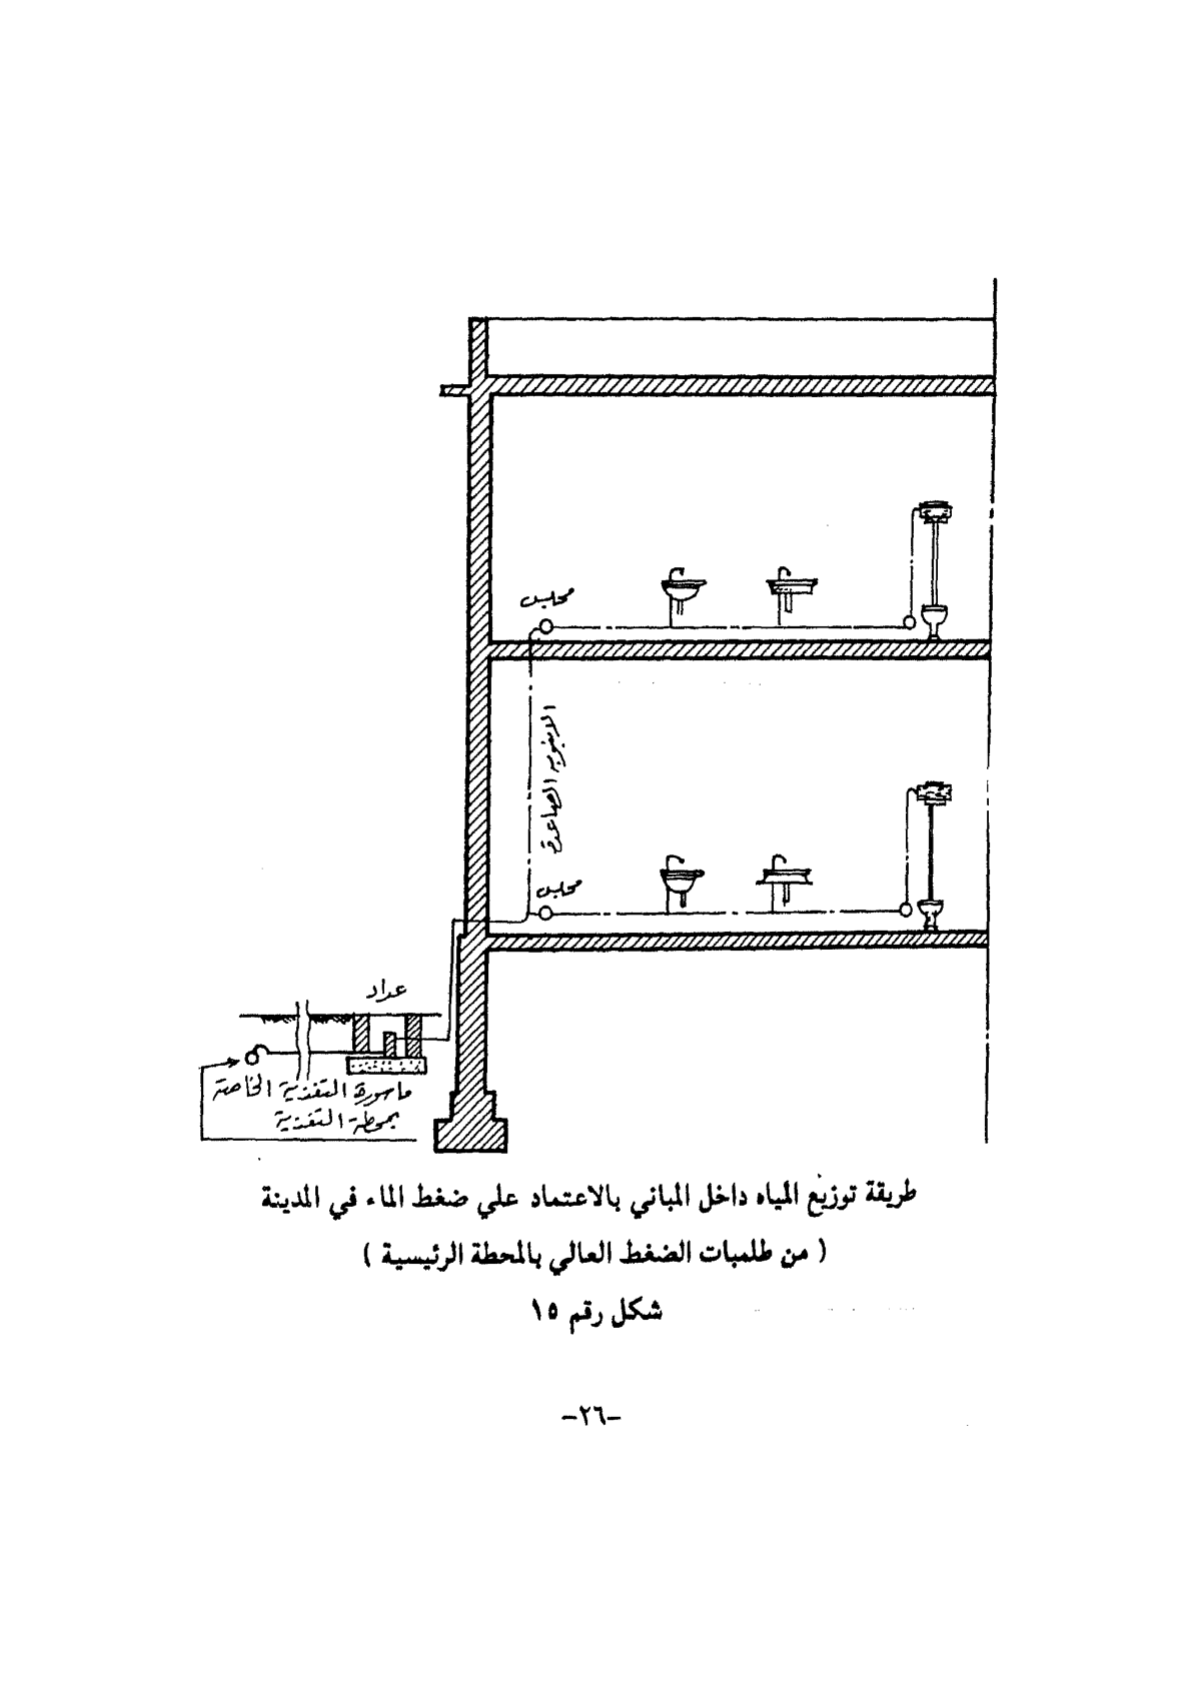 محبس
الانبوبه الصاعدة
محبس
عداد
ماسورة التغذية الخاصة
بمحطة التغذية
طريقة توزيع المياه داخل المباني بالاعتماد علي ضغط الماء في المدينة
( من طلمبات الضغط العالي بالمحطة الرئيسية )
شكل رقم ١٥
-٢٦-